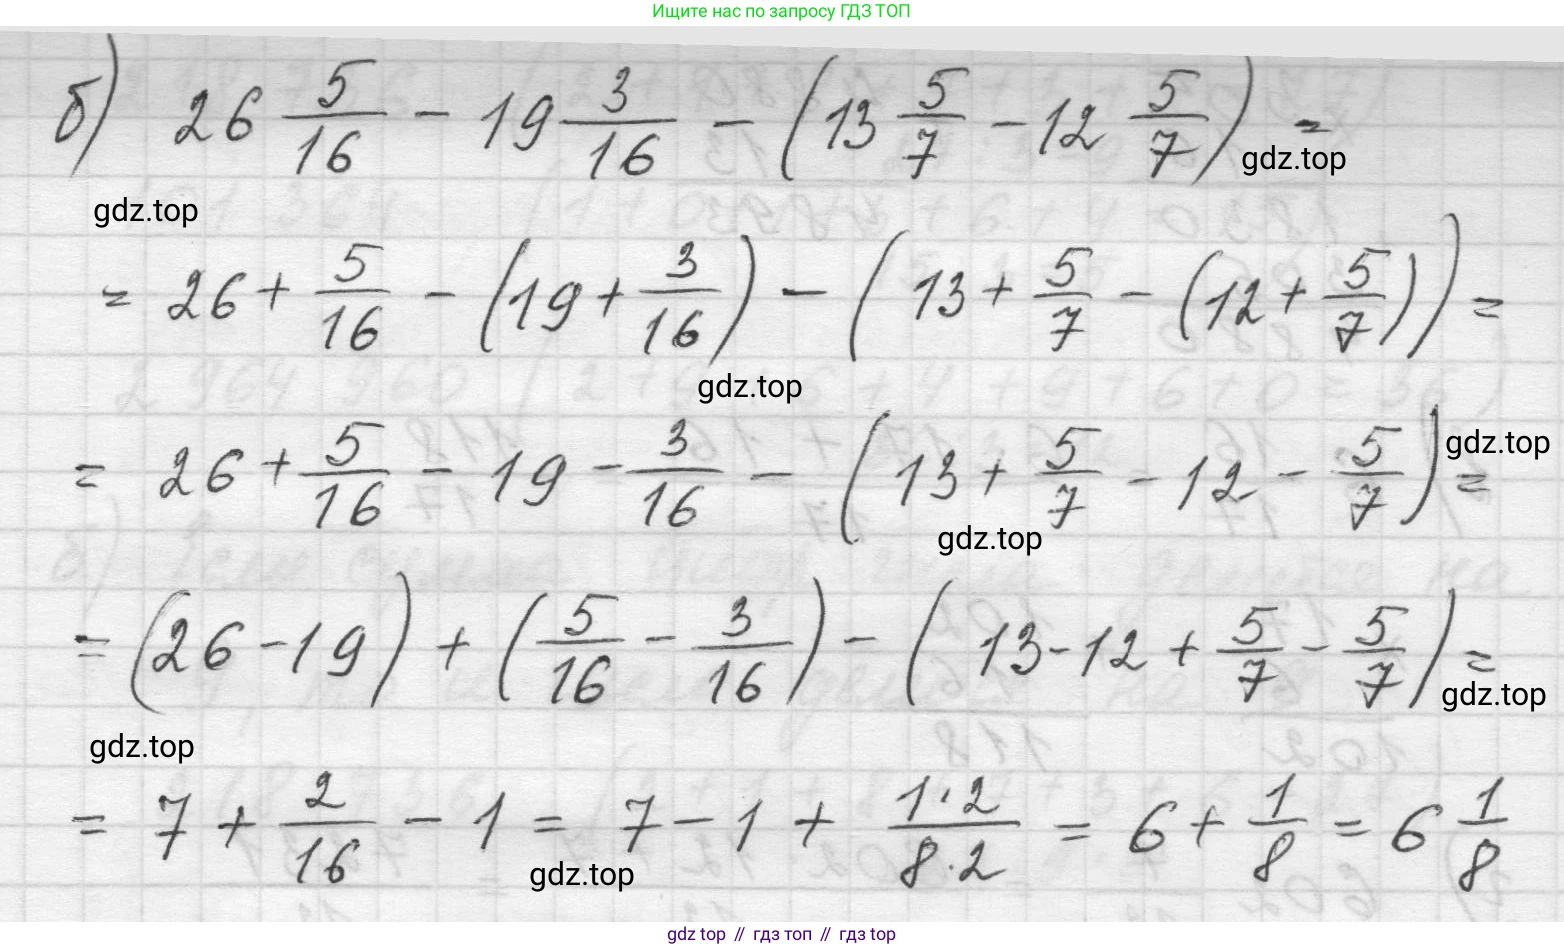 Ищите нас по запросу ГДЗ ТОП
б) 26 5/16 - 19 3/16 - (13 5/7 - 12 5/7) =
gdz.top
gdz.top
= 26 + 5/16 - (19 + 3/16) - (13 + 5/7 - (12 + 5/7)) =
gdz.top
= 26 + 5/16 - 19 - 3/16 - (13 + 5/7 - 12 - 5/7) =
gdz.top
gdz.top
= (26 - 19) + (5/16 - 3/16) - (13 - 12 + 5/7 - 5/7) =
gdz.top
gdz.top
= 7 + 2/16 - 1 = 7 - 1 + 1·2/8·2 = 6 + 1/8 = 6 1/8
gdz.top
gdz top // гдз топ // гдз top